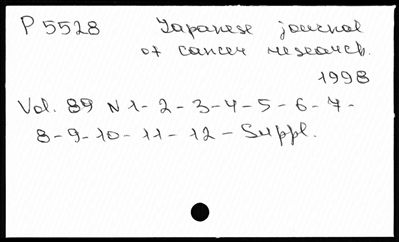 P 5528 Japanese journal
of cancer research.
1998
Vol. 89 N 1-2-3-4-5-6-7-
8-9-10-11-12-Suppl.